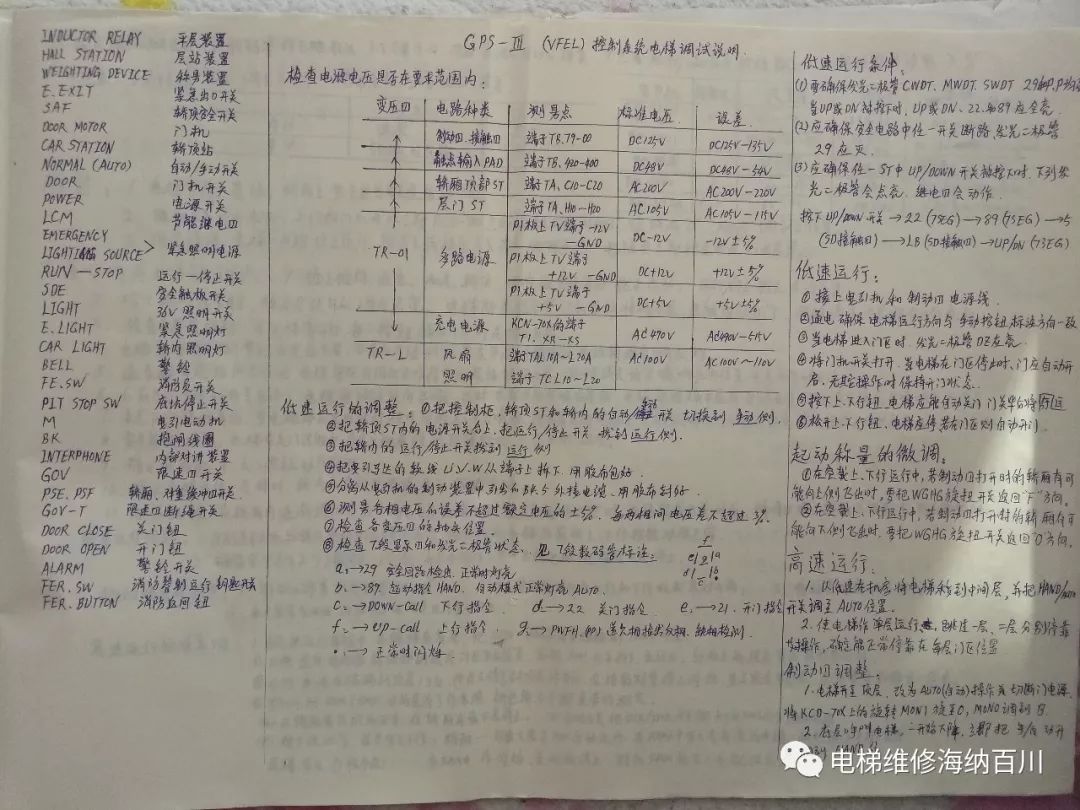 GPS-III (VFEL) 控制系统电梯调试说明.
INDUCTOR RELAY 平层装置
HALL STATION 层站装置
WEIGHTING DEVICE 称量装置
E.EXIT 紧急出口开关
SAF 轿顶安全开关
DOOR MOTOR 门机
CAR STATION 轿顶站
NORMAL (AUTO) 自动/手动开关
DOOR 门机开关
POWER 电源开关
LCM 节能继电口
EMERGENCY
LIGHTING SOURCE 紧急照明电源
RUN-STOP 运行-停止开关
SDE 安全触板开关
LIGHT 36V 照明开关
E.LIGHT 紧急照明灯
CAR LIGHT 轿内照明灯
BELL 警铃
FE.SW 消防员开关
PIT STOP SW 底坑停止开关
M 电引电动机
BK 抱闸线圈
INTERPHONE 内部对讲装置
GOV 限速口开关
PSE.PSF 轿厢.对重缓冲口开关
GOV-T 限速口断绳开关
DOOR CLOSE 关门钮
DOOR OPEN 开门钮
ALARM 警铃开关
FER.SW 消防
FER.BUTTON 消防返回钮
检查电源电压是否在要求范围内:
变压口 电路种类 测量点 标准电压 误差
制动口.接触口 端子TB.79-00 DC125V DC125V-135V
触点输入PAD 端子TB.420-400 DC48V DC48V-54V
轿厢顶部ST 端子TA.C10-C20 AC200V AC200V-220V
层门ST 端子TA.H10-H20 AC105V AC105V-115V
TR-01 多路电源 P1板上TV端子-12V-GND DC-12V -12V±5%
P1板上TV端子+12V-GND DC+12V +12V±5%
P1板上TV端子+5V-GND DC+5V +5V±5%
充电电源 KCN-70X的端子T1.XR-XS AC470V
TR-L 风扇 端子TAL10A-L20A AC100V AC100V~110V
照明 端子TCL10-L20
低速运行的调整: ①把控制柜,轿顶ST和轿内的自动/手动开关切换到手动侧.
②把轿顶ST内的电源开关合上,把运行/停止开关拨到运行侧.
③把轿内的运行/停止开关拨到运行侧
④把曳引马达的接线U.V.W从端子上拆下.用胶布包好
⑤分离从电引机的制动装置中引出的BK5外接电缆.用胶布包好.
⑥测量各相电压的误差不超过额定电压的±5%.每两相间电压差不超过
⑦检查各变压口的抽头位置.
⑧检查7段显示口和发光二极管状态.见7段数码管标法:
f
e|g|a
d|c|b
a.→29 安全回路检出.正常时灯亮
b.→89.运动指令HAND.自动模式正常灯亮AUTO.
c.→DOWN-call 下行指令. d→22 关门指令. e.→21.开门指令
f.→up-call 上行指令. g→PWFH.(P1)逆欠相检发.缺相检测.
·.→正常时闪烁.
低速运行条件:
(1)要确保发光二极管CWDT.MWDT.SWDT
当UP或DN被按下时,UP或DN、22.和89应全亮.
(2)应确保安全电路中任一开关断路.发光二极管
29应灭.
(3)应确保任一ST中UP/DOWN开关被按下时.下列发
光二极管会点亮.继电口会动作.
按下UP/DOWN开关→22(7SEG)→89(7SEG)→5
(5D接触口)→LB(5D接触口)→UP/DN(73EG)
低速运行:
①接上电引机和制动口电源线.
②通电确保电梯运行方向与手动按钮标志方向一致
③当电梯进入门区时,发光二极管DZ应亮.
④将门机开关打开.当电梯在门区停止时,门应自动开
启.无任何操作时保持开门状态.
⑤按下上.下行钮.电梯应能自动关门
⑥松开上.下行钮.电梯应停若在门区则自动开门.
起动称量的微调:
①在空载上、下行运行中,若制动口打开时的轿厢有可
能向上侧飞出时,要把WGHG旋钮开关返回"F"方向.
②在空载上、下行运行中,若制动口打开时的轿厢有可
能向下侧飞出时.要把WGHG旋钮开关返回"0"方向.
高速运行:
1.以低速在机房将电梯移到中间层,并把HAND/auto
开关调至AUTO位置.
2.使电梯作单层运行.跳过一层、二层分别停靠
操作,确定能正常停靠在每层门区位置
制动口调整:
1.电梯开至顶层.改为AUTO(自动)操作或切断门电源
将KCD-70X上的旋转MON1旋至0,MON0调到B.
2.底层呼叫电梯.一开始下降,立即把手/自动开
电梯维修海纳百川